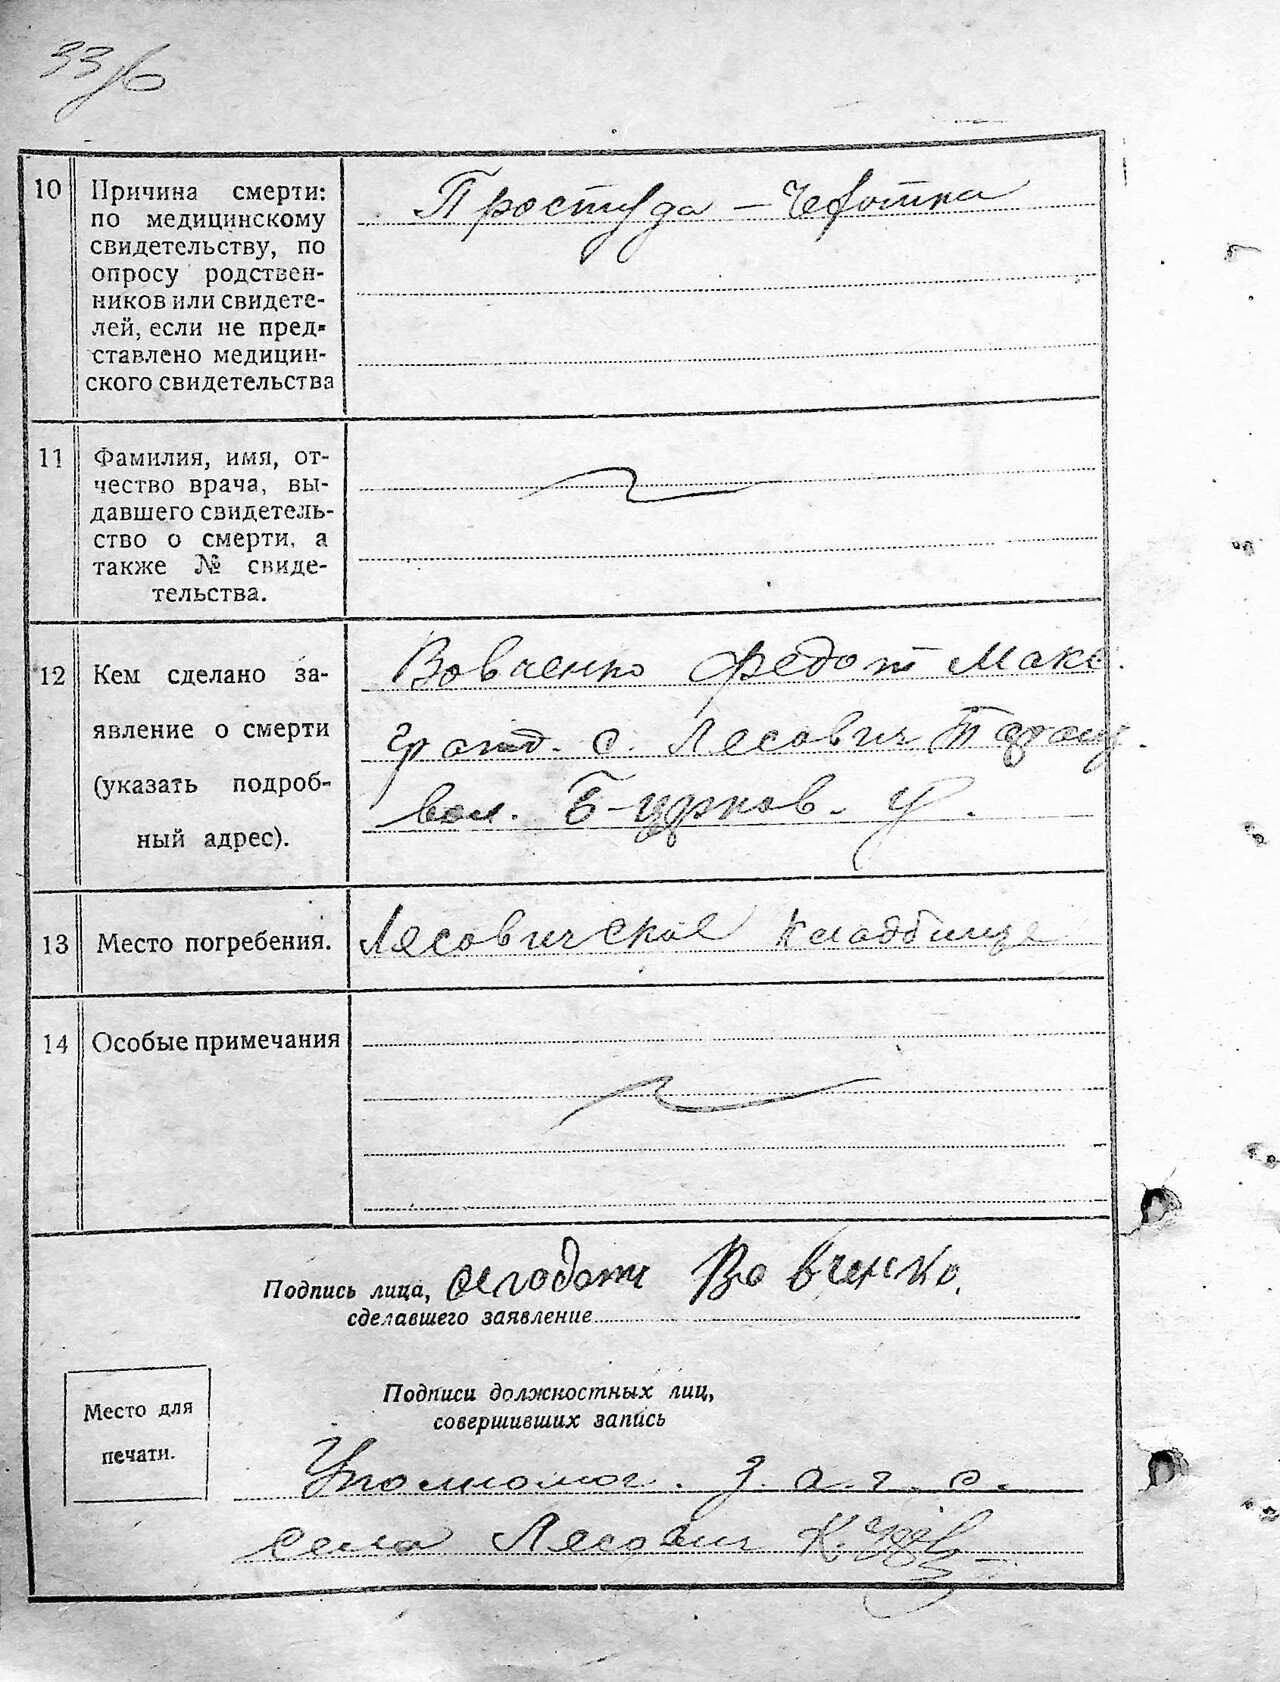 33/б
10 Причина смерти:
по медицинскому
свидетельству, по
опросу родствен-
ников или свидете-
лей, если не пред-
ставлено медицин-
ского свидетельства
Простуда –
11 Фамилия, имя, от-
чество врача, вы-
давшего свидетель-
ство о смерти, а
также № свиде-
тельства.
12 Кем сделано за-
явление о смерти
(указать подроб-
ный адрес).
Вовченко Федот Макс.
гражд. с. Лесович Таращ.
вол. Б-церков. у.
13 Место погребения.
Лясовичское кладбище
14 Особые примечания
Подпись лица,
сделавшего заявление
Вовченко.
Место для
печати.
Подписи должностных лиц,
совершивших запись
Уполномоч. з. а. г. с.
села Лясович К.